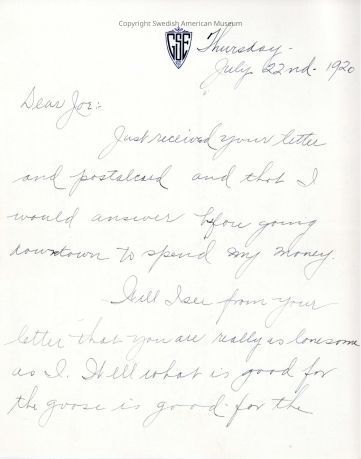 Copyright Swedish American Museum
GSE
Thursday-
July 22nd-1920
Dear Joe:-
Just received your letter
and postalcard and thot I
would answer before going
downtown to spend my money.
Well I see from your
letter that you are really as lonesome
as I. Well what is good for
the goose is good for the